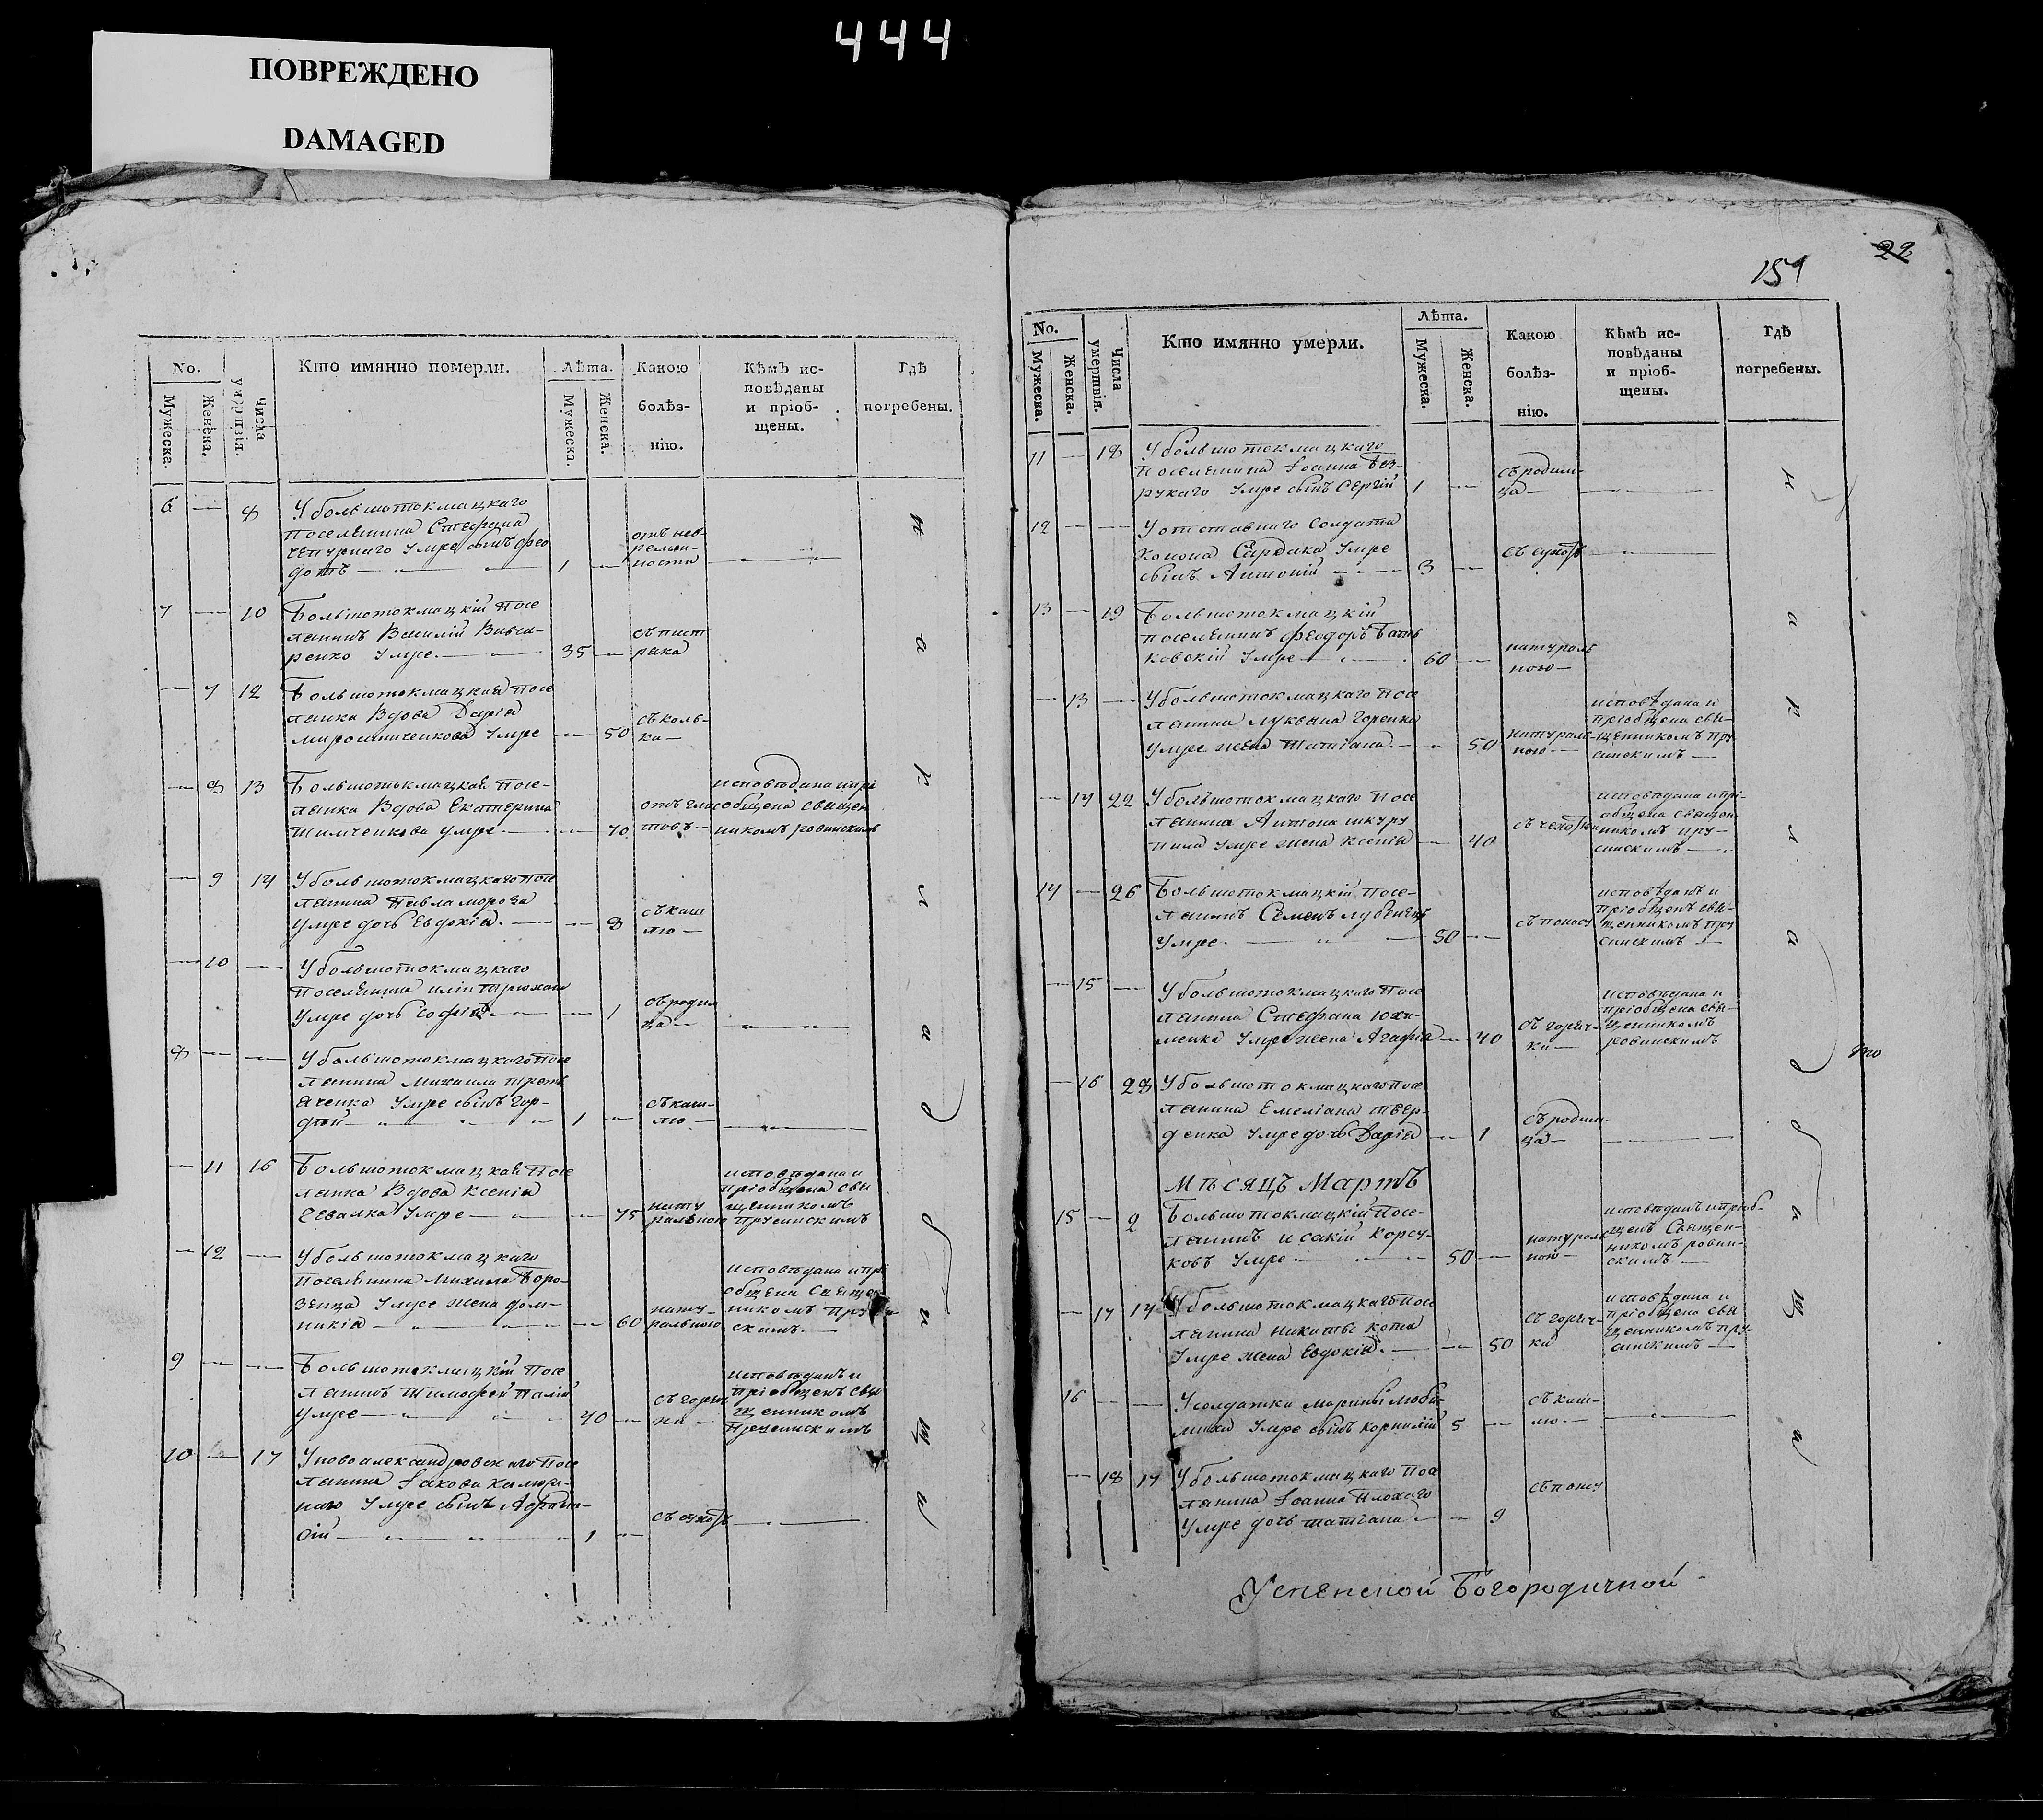 444
ПОВРЕЖДЕНО
DAMAGED
No.
Мужеска.
Женска.
Числа умертвія.
Кто имянно померли.
Лѣта.
Мужеска.
Женска.
Какою болѣз-нію.
Кѣмъ ис-повѣданы и пріоб-щены.
Гдѣ погребены.
6 — 8 У большотокмацкаго
поселянина Стефана
чепурнаго умре сынъ Фео
дотъ — 1 —
7 — 10 Большотокмацкій посе
лянинъ Василій
умре. — 35 —
— 7 12 Большотокмацкая посе
лянка вдова Дарія
мирошниченкова умре — 50
— 8 13 Большотокмацкая посе-
лянка Вдова Екатерина
Тимченкова умре — 70
исповѣдана и прі
общена священ
никомъ ровинскимъ
— 9 14 У большотокмацкаго посе
лянина Павла мороза
умре дочь Евдокія. — 8 съ каш
лю —
— 10 — У большотокмацкаго
поселянина иліи
умре дочь Софія — 1 съ родим
ца —
8 — — У большотокмацкаго посе
лянина Михаила трет
яченка умре сынъ Гор-
дѣй — 1 — съ каш-
лю —
— 11 16 Большотокмацкая посе
лянка Вдова Ксенія
умре — 75 нату
ральною
исповѣдана и
пріобщена свя
щенникомъ
прусинскимъ
— 12 — У большотокмацкаго
поселянина михаила Боро-
венца умре жена дом-
никія — 60 нату-
ральною
исповѣдана и прі
общена Свяще
никомъ
скимъ. —
9 — — Большотокмацкій посе
лянинъ Тимофей Палій
умре — 70 — съ горяч
ки —
исповѣданъ и
пріобщенъ свя
щенникомъ
10 — 17 У новоалександровскаго посе
лянина Іакова
умре сынъ
— 1 — съ сухот
на кладбища
151
22
No.
Мужеска.
Женска.
Числа умертвія.
Кто имянно умерли.
Лѣта.
Мужеска.
Женска.
Какою болѣз-нію.
Кѣмъ ис-повѣданы и пріоб-щены.
Гдѣ погребены.
11 — 18 У большотокмацкаго
поселянина Іоанна Без-
рукаго умре сынъ Сергій 1 — съ родим-
ца —
12 — — У отставнаго солдата
Конона Сардика умре
сынъ Антоній — 3 — съ сухот
13 — 19 Большотокмацкій
поселянинъ Феодоръ Бать
ковскій умре — 60 — натураль
ною —
— 13 — У большотокмацкаго посе
лянина лукьяна Горенка
умре жена Татіана. — 50 натураль-
ною —
исповѣдана и
пріобщена свя-
щенникомъ пру
синскимъ —
— 14 22 У большотокмацкаго посе
лянина Антона шкуру
пила умре жена Ксенія — 40 съ чехотки
исповѣдана и прі-
общена священ
никомъ пру-
синскимъ —
14 — 26 Большотокмацкій посе-
лянинъ Семенъ
умре. — 50 — съ поносу
исповѣданъ и
пріобщенъ свя-
щенникомъ пру
синскимъ —
— 15 — У большотокмацкаго посе
лянина Стефана Юхи-
менка умре жена Агафія — 40 съ горяч-
ки —
исповѣдана и
пріобщена свя-
щенникомъ
ровинскимъ
— 16 28 У большотокмацкаго посе
лянина Емеліана твер-
денка умре дочь Дарія — 1 съ родим-
ца —
Мѣсяцъ Мартъ
15 — 2 Большотокмацкій посе-
лянинъ исакій корсу-
ковъ умре — 50 — натураль
ною —
исповѣданъ и пріоб-
щенъ Священ-
никомъ ровин-
скимъ —
— 17 14 У большотокмацкаго посе
лянина никиты кота
умре жена Евдокія. — 50 съ горяч-
ки
исповѣдана и
пріобщена свя
щенникомъ пру-
синскимъ —
16 — — У солдатки марины любы
умре сынъ корнилій 5 — съ каш-
лю —
— 18 17 У большотокмацкаго посе
лянина Іоанна Плохаго
умре дочь татіана — 9 съ поносу
на кладбища
Успенской Богородичной